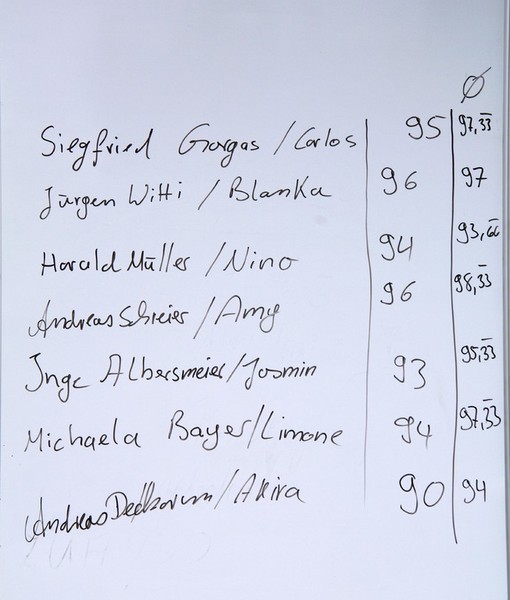 Ø
Siegfried Gorgas / Carlos 95 97,33
Jürgen Witti / Blanka 96 97
Harald Müller / Nino 94 93,66
Andreas Schreier / Amy 96 98,33
Inge Albersmeier / Josmin 93 95,33
Michaela Bayer / Limone 94 97,33
Andreas / Akira 90 94